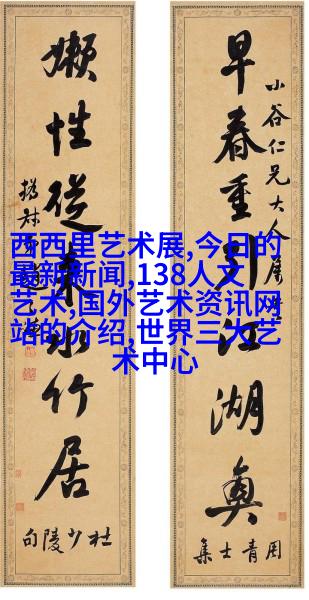 西西里艺术展,今日的
最新新闻,138人文
艺术,国外艺术资讯网
站的介绍,世界三大艺
术中心
早春重引江湖興
小谷仁兄大人屬
周青士集
嬾性從來水竹居
撝叔弟趙之謙
杜少陵句